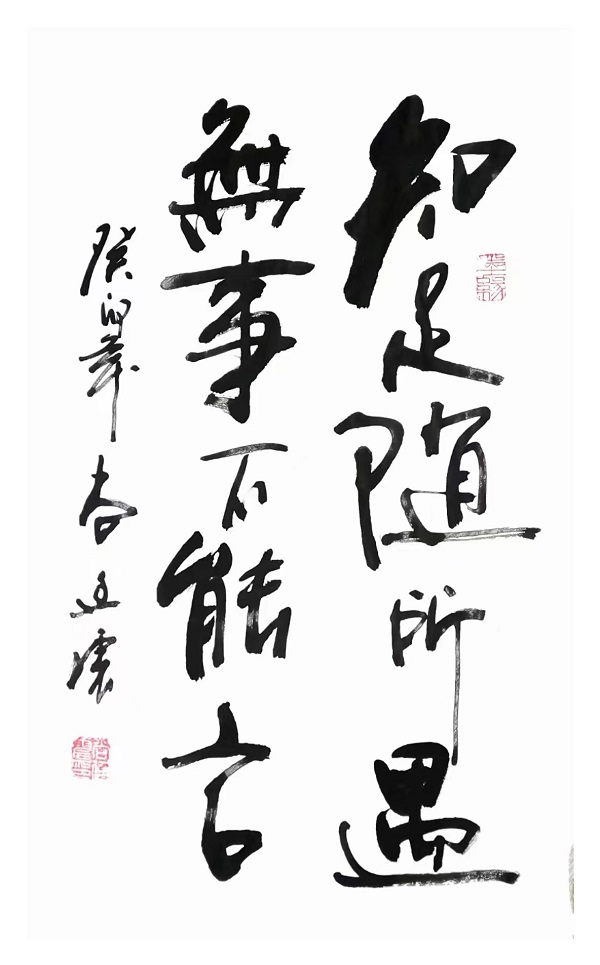 知足随所遇
無事不能言
癸卯年春